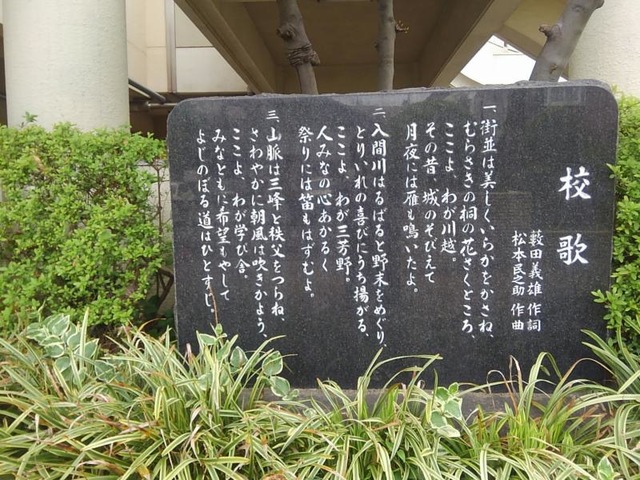 校歌
藪田義雄 作詞
松本民之助 作曲
一、街並は美しくいらかをかさね、
むらさきの桐の花さくところ、
ここよ、わが川越。
その昔 城のそびえて
月夜には雁も鳴いたよ。
二、入間川はるばると野末をめぐり、
とりいれの喜びにうち揚がる、
ここよ、わが三芳野。
人みなの心あかるく
祭りには笛もはずむよ。
三、山脈は三峰と秩父をつらね、
さわやかに朝風は吹きかよう、
ここよ、わが学び舎。
みなともに希望もやして
よじのぼる道はひとすじ。